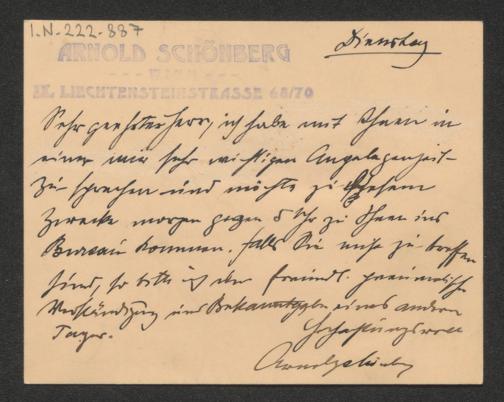 I.N-222.887
ARNOLD SCHÖNBERG
WIEN
IX. LIECHTENSTEINSTRASSE 68/70
Dienstag
Sehr geehrter Herr, ich habe mit Ihnen in
einer mir sehr wichtigen Angelegenheit
zu sprechen und möchte zu diesem
Zwecke morgen gegen 5 Uhr zu Ihnen ins
Bureau kommen. Falls Sie nicht zu treffen
sind, so bitte ich um freundl. pneumatische
Verständigung und Bekanntgabe eines andern
Tages.
Hochachtungsvoll
Arnold Schönberg